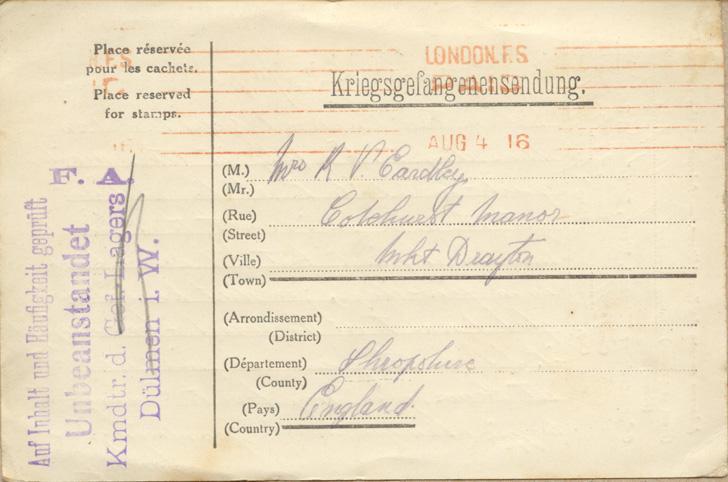 Place réservée
pour les cachets.
Place reserved
for stamps.
LONDON.F.S.
Kriegsgefangenensendung.
AUG 4 16
(M.) Mrs R V Eardley
(Mr.)
(Rue) Colehurst Manor
(Street)
(Ville) Mkt Drayton
(Town)
(Arrondissement)
(District)
(Département) Shropshire
(County)
(Pays) England.
(Country)
Auf Inhalt und Häufigkeit geprüft F. A.
Unbeanstandet
Kmdtr. d. Gef. Lagers
Dülmen i. W.